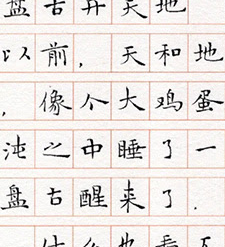 盘古开天地
以前，天和地
，像个大鸡蛋
沌之中睡了一
盘古醒来了.